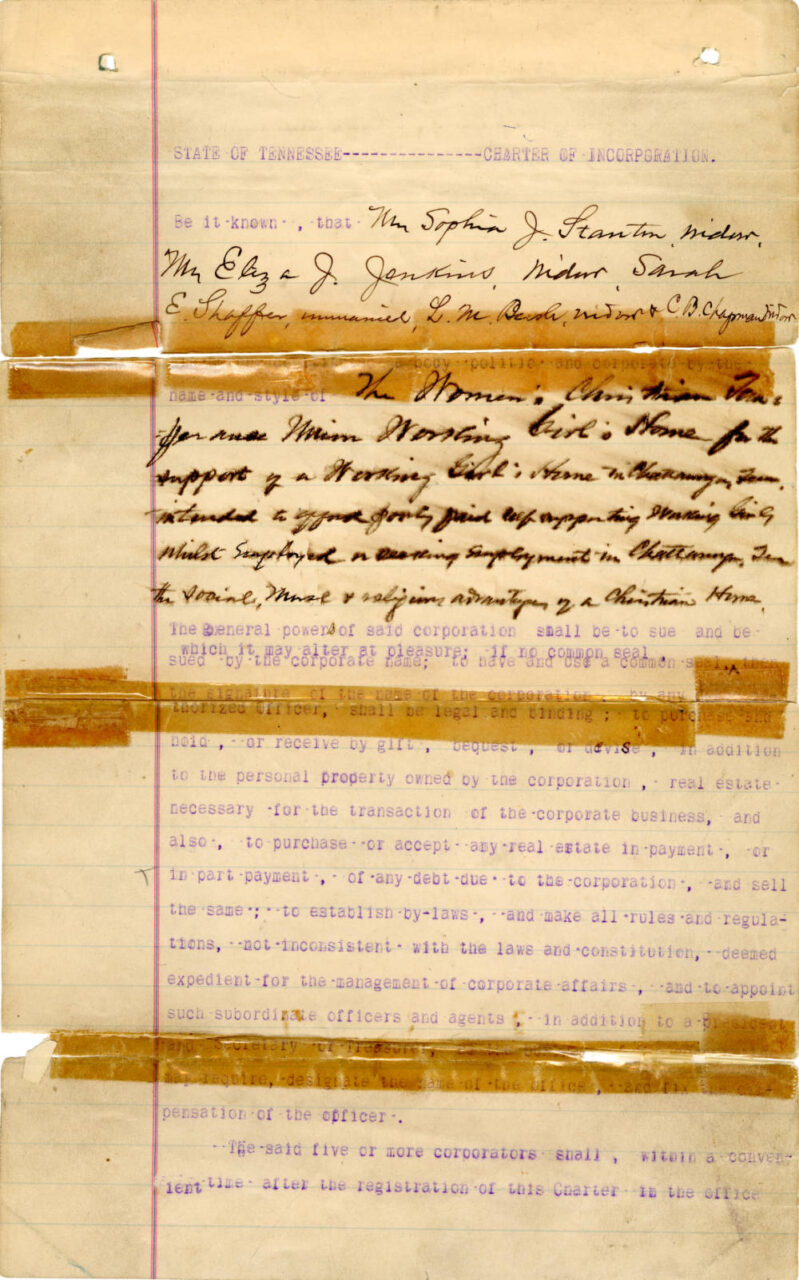 STATE OF TENNESSEE---------------CHARTER OF INCORPORATION.
Be it known , that Mrs Sophia J. Stanton, widow,
Mrs Eliza J. Jenkins, widow, Sarah
E. Shaffer, unmarried, L. M. Bush, widow & C. B. Chapman widow
a body politic and corporate by the
name and style of The Women's Christian Tem-
perance Union Working Girl's Home for the
support of a Working Girl's Home in Chattanooga, Tenn.
intended to afford poorly paid self supporting Working Girls
whilst Employed or seeking Employment in Chattanooga, Tenn
the social, Moral & religious advantages of a Christian Home.
The general powers of said corporation shall be to sue and be
which it may alter at pleasure; if no common seal ,
sued by the corporate name; to have and use a common seal, then
the signature of the name of the corporation , by any
thorized Officer, shall be legal and binding ; to purchase and
hold , or receive by gift , bequest , or devise , in addition
to the personal property owned by the corporation , real estate
necessary for the transaction of the corporate business, and
also , to purchase or accept any real estate in payment , or
in part payment , of any debt due to the corporation , and sell
the same ; to establish by-laws , and make all rules and regula-
tions, not inconsistent with the laws and constitution, deemed
expedient for the management of corporate affairs , and to appoint
such subordinate officers and agents , in addition to a President
and Secretary or Treasurer,
may require, designate the name of the office , and fix the com-
pensation of the officer .
The said five or more corporators shall , within a conven-
ient time after the registration of this Charter in the office